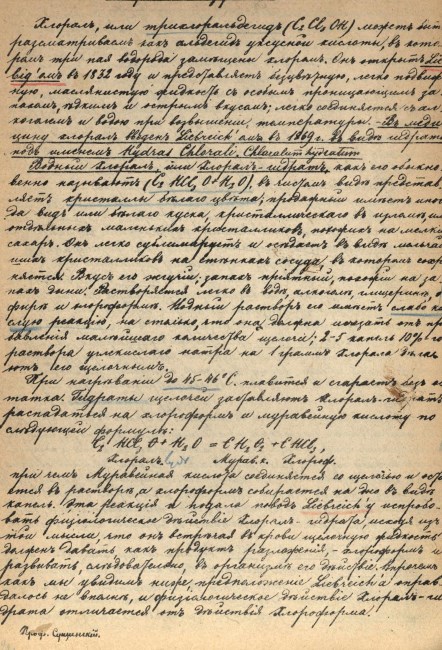 Хлоралъ, или трихлоральдегидъ (C₂Cl₃OH) можетъ быть
разсматриваемъ какъ альдегидъ уксусной кислоты, въ кото-
ромъ три пая водорода замѣщены хлоромъ. Онъ открытъ Lie-
big'омъ въ 1832 году и представляетъ безцвѣтную, легко подвиж-
ную, маслянистую жидкость съ особымъ проницающимъ за-
пахомъ, ѣдкимъ и острымъ вкусомъ; легко соединяется съ ал-
коголемъ и водою при возвышеніи температуры. Въ меди-
цину хлоралъ введенъ Liebreich'омъ въ 1869 г. въ видѣ гидрата
подъ именемъ Hydras Chlorali, Chloralum hydratum
Водный хлоралъ, или хлоралъ-гидратъ, какъ его обыкно-
венно называютъ (C₂HCl₃O+H₂O), въ чистомъ видѣ представ-
ляетъ кристаллы бѣлаго цвѣта; продажный имѣетъ иног-
да видъ или бѣлаго куска, кристаллическаго въ изломѣ,
отдѣльныхъ маленькихъ кристалликовъ, похожихъ на мелкій
сахаръ. Онъ легко сублимируетъ и осѣдаетъ въ видѣ мельчай-
шихъ кристалликовъ на стѣнкахъ сосуда, въ которомъ сохра-
няется. Вкусъ его жгучій; запахъ пріятный, похожій на за-
пахъ дыни. Растворяется легко въ водѣ, алкоголѣ, глицеринѣ,
эфирѣ и хлороформѣ. Водный растворъ его имѣетъ слабо ки-
слую реакцію, на столько, что она должна исчезать отъ при-
бавленія малѣйшаго количества щелочи; 2-5 капель 10%
раствора углекислаго натра на 1 граммъ хлорала дѣла-
ютъ его щелочнымъ.
При нагрѣваніи до 45-46°C. плавится и сгараетъ безъ ос-
татка. Гидраты щелочей заставляютъ хлоралъ-гидратъ
распадаться на хлороформъ и муравейную кислоту по
слѣдующей формулѣ:
C₂HCl₃O+H₂O = CH₂O₂+CHCl₃,
Хлоралъ Мурав.к. Хлороф.
при чемъ Муравейная кислота соединяется со щелочью и оста-
ется въ растворѣ, а хлороформъ собирается на дно въ видѣ
капель. Эта реакція и подала поводъ Liebreich'у испробо-
вать физіологическое дѣйствіе хлоралъ-гидрата, исходя изъ
той мысли, что онъ встрѣчая въ крови щелочную жидкость
долженъ давать какъ продуктъ разложенія, - хлороформъ и
развивать, слѣдовательно, въ организмѣ его дѣйствіе. Впрочемъ
какъ мы увидимъ ниже, предположеніе Liebreich'а оправ-
далось не вполнѣ, и физіологическое дѣйствіе хлоралъ-ги-
драта отличается отъ дѣйствія хлороформа.